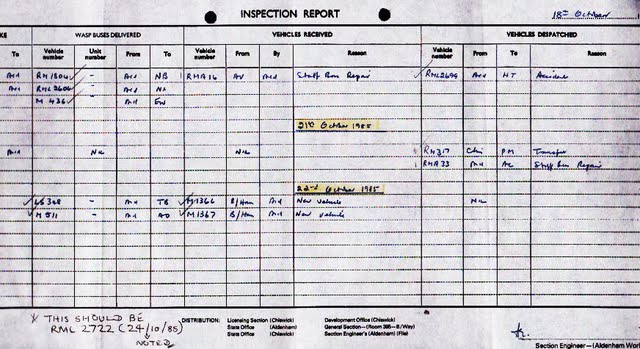 INSPECTION REPORT
18th October
KE WASP BUSES DELIVERED VEHICLES RECEIVED VEHICLES DESPATCHED
To Vehicle number Unit number From To Vehicle number From By Reason Vehicle number From To Reason
Ard RM1804 - Ard NB RMA16 AV Ard Staff Bus Repair RML2699 Ard HT Accident
Ard RML2606 - Ard
M 436 - Ard EW
21st October 1985
Ard NIL NIL RM317 PM Transfer
RMA33 Ard Staff Bus Repair
22nd October 1985
LS348 - Ard TB M1366 B/Ham Ard New Vehicle NIL
M 511 - Ard AD M1367 B/Ham Ard New Vehicle
X THIS SHOULD BE
RML 2722 (24/10/85)
NOTED
DISTRIBUTION: Licensing Section (Chiswick) Development Office (Chiswick)
State Office (Aldenham) General Section—(Room 395—B/Way)
State Office (Chiswick) Section Engineer's (Aldenham) (File)
Section Engineer (Aldenham Wor